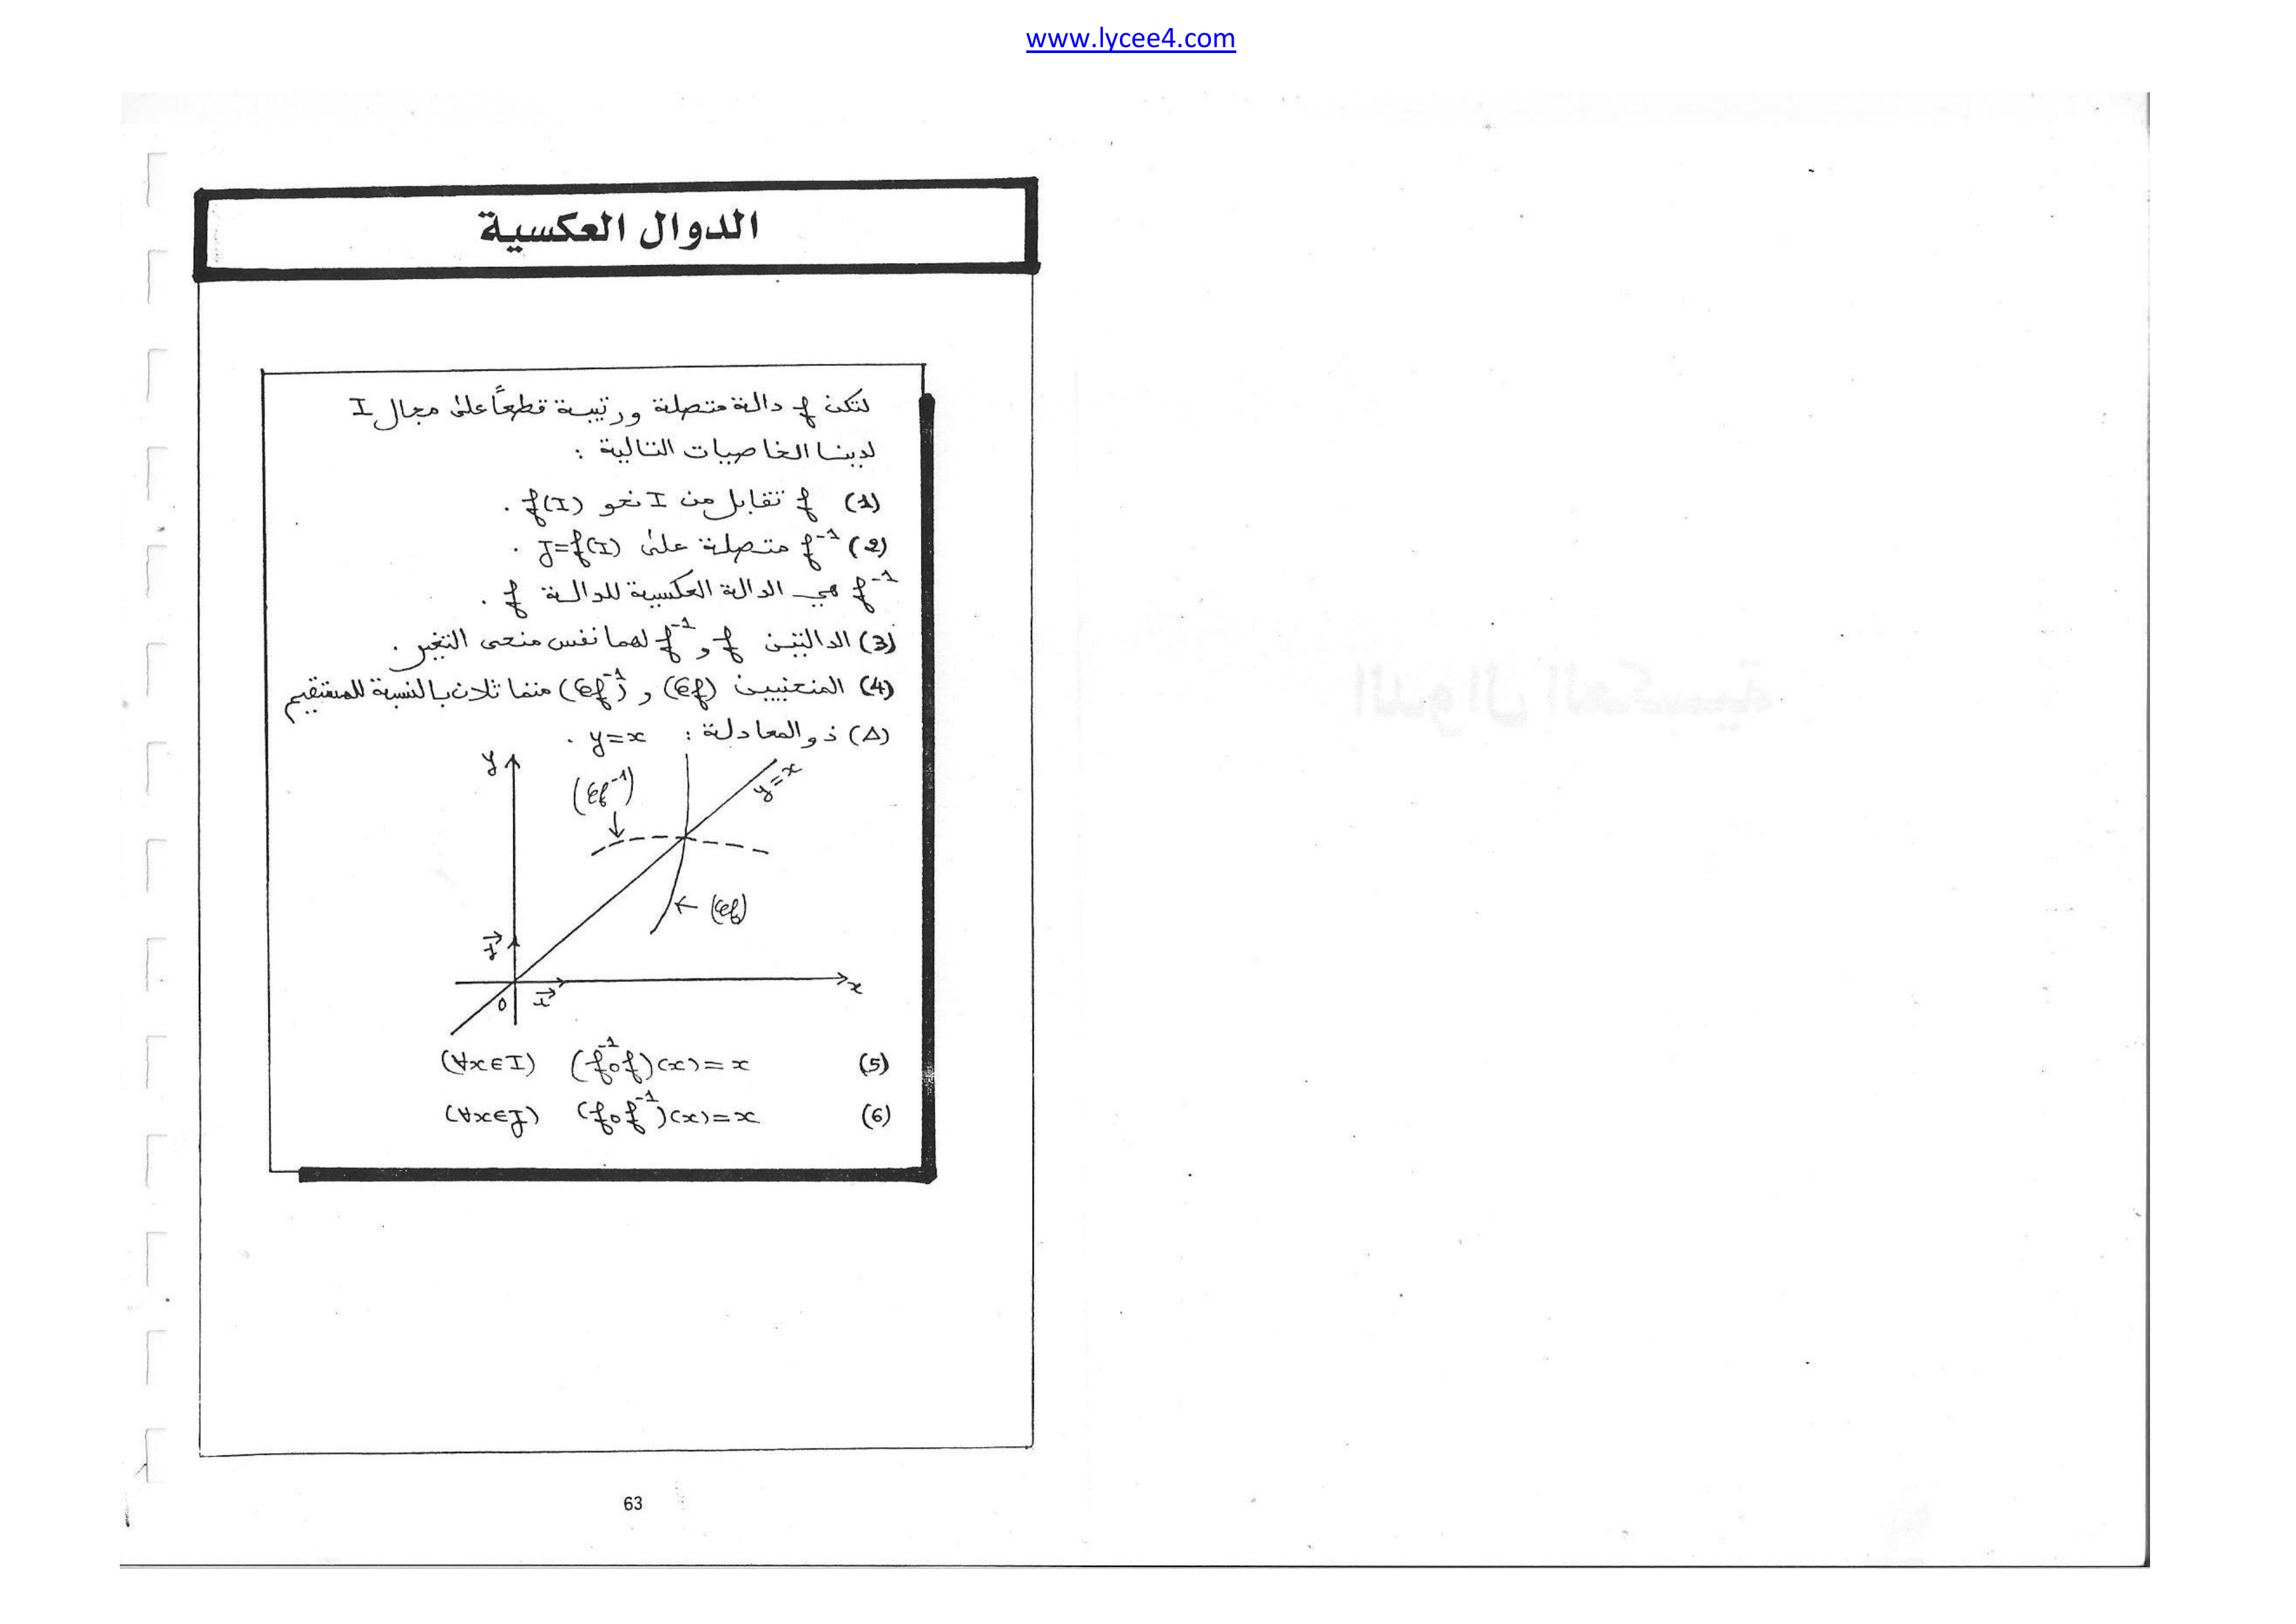 www.lycee4.com
الدوال العكسية
لتكن f دالة متصلة ورتيبة قطعاً على مجال I
لدينا الخاصيات التالية :
(1) f تقابل من I نحو f(I) .
(2) f⁻¹ متصلة على J=f(I) .
f⁻¹ هي الدالة العكسية للدالة f .
(3) الدالتين f و f⁻¹ لهما نفس منحى التغير.
(4) المنحنيين (𝒞f) و (𝒞f⁻¹) متماثلان بالنسبة للمستقيم
(Δ) ذو المعادلة : y=x .
y
(𝒞f⁻¹)
y=x
(𝒞f)
j
O
i
x
(5) (f⁻¹∘f)(x)=x (∀x∈I)
(6) (f∘f⁻¹)(x)=x (∀x∈J)
63